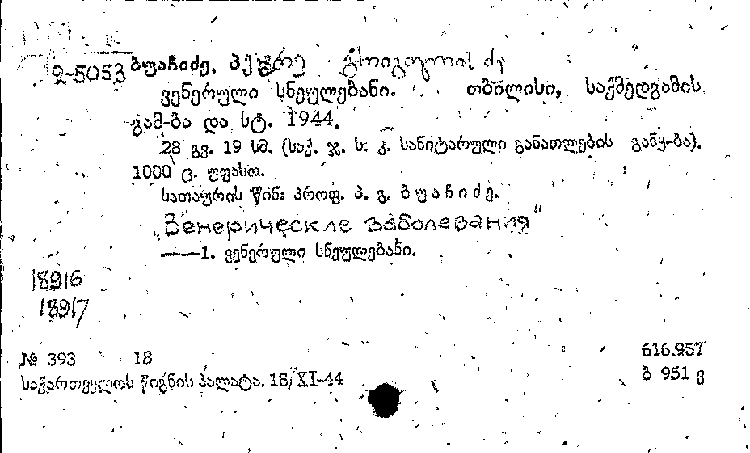 2-5053 ბუაჩიძე, პეტრე გრიგოლის ძე
ვენერული სნეულებანი. თბილისი, საქმედგამის
გამ-ბა და სტ. 1944.
28 გვ. 19 სმ. (საქ. ჯ. ს. კ. სანიტარული განათლების განყ-ბა).
1000 ც. უფასო.
სათაურის წინ: პროფ. პ. გ. ბუაჩიძე.
„Венерические заболевания“
——1. ვენერული სნეულებანი.
18916
18917
№ 393 18 616.957
საქართველოს წიგნის პალატა. 18/XI-44 ბ 951 ვ